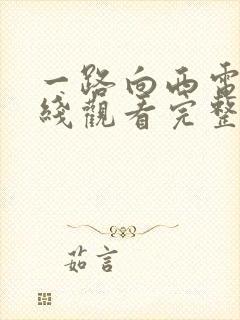 一路向西電
綫觀看完整
茹言